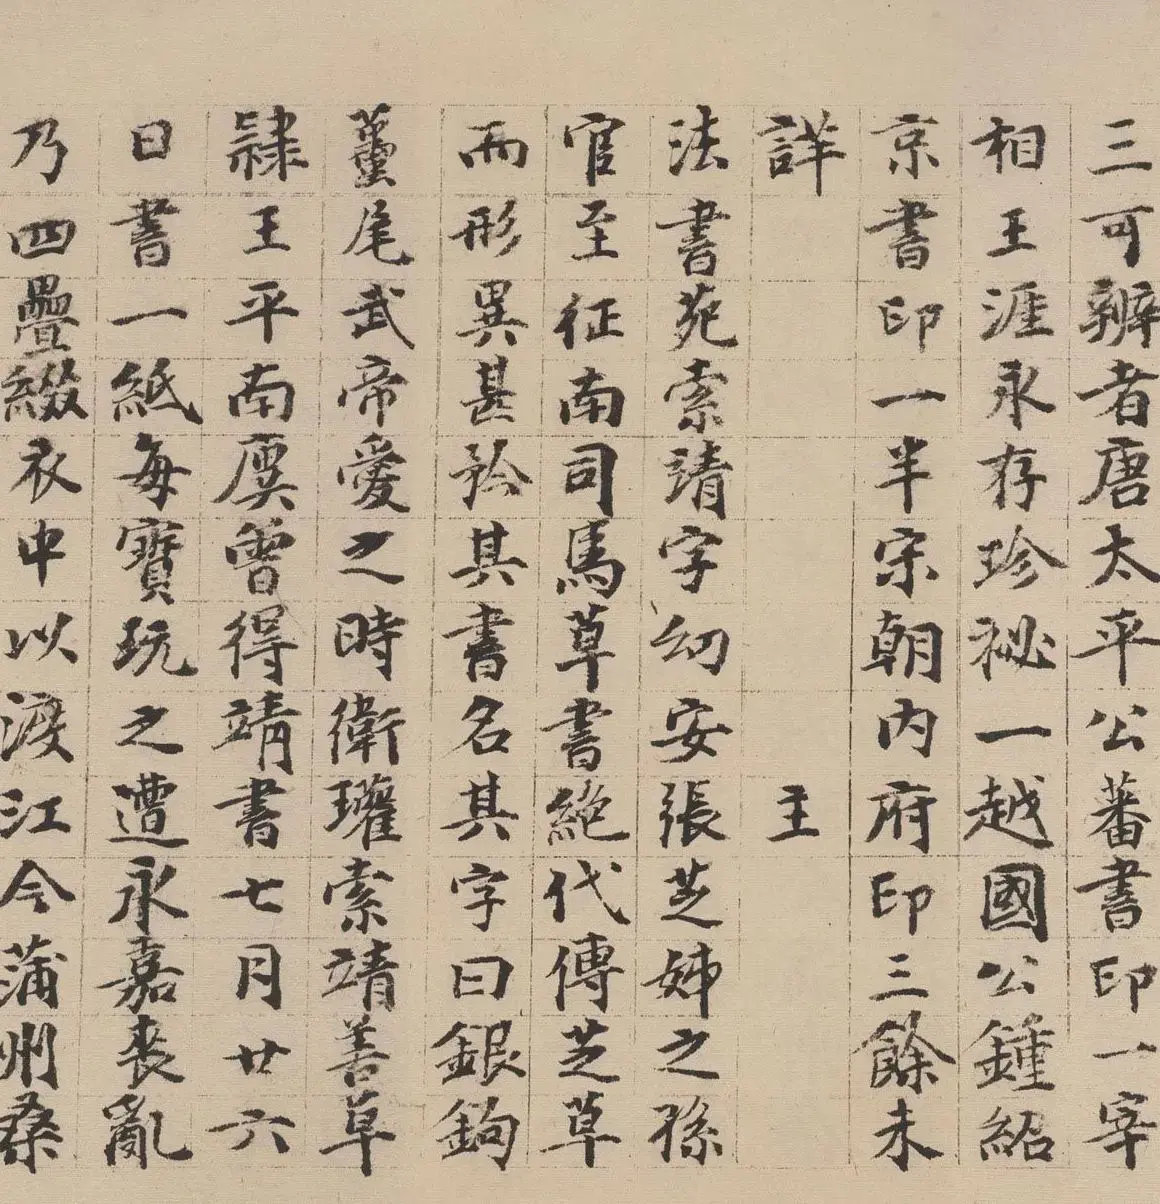 三可辨者唐太平公蕃書印一宰
相王涯永存珍祕一越國公鍾紹
京書印一半宋朝内府印三餘未
詳 主
法書苑索靖字幼安張芝姊之孫
官至征南司馬草書絶代傳芝草
而形異甚矜其書名其字曰銀鉤
蠆尾武帝愛之時衛瓘索靖善草
隸王平南廙曾得靖書七月廿六
日書一紙每寶玩之遭永嘉喪亂
乃四疊綴衣中以渡江今蒲州桑